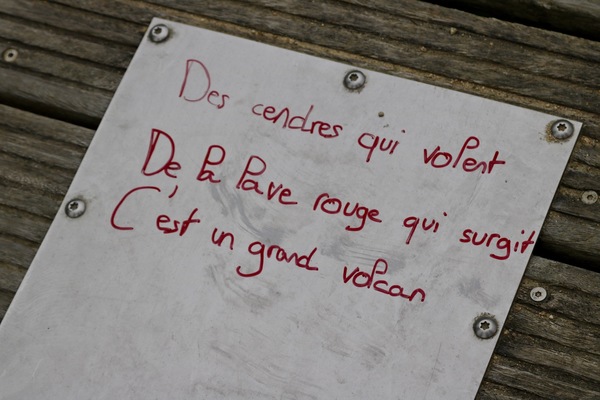 Des cendres qui volent
De la lave rouge qui surgit
C'est un grand volcan